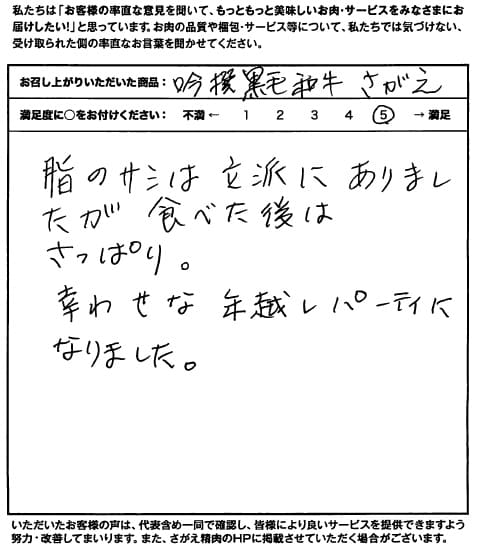 私たちは「お客様の率直な意見を聞いて、もっともっと美味しいお肉・サービスをみなさまにお
届けしたい!」と思っています。お肉の品質や梱包・サービス等について、私たちでは気づけない、
受け取られた側の率直なお言葉を聞かせてください。
お召し上がりいただいた商品： 吟撰黒毛和牛 さがえ
満足度に○をお付けください： 不満 ← 1 2 3 4 5 → 満足
脂のサシは立派にありまし
たが 食べた後は
さっぱり。
幸わせな 年越しパーティに
なりました。
いただいたお客様の声は、代表含め一同で確認し、皆様により良いサービスを提供できますよう
努力・改善してまいります。また、さがえ精肉のHPに掲載させていただく場合がございます。